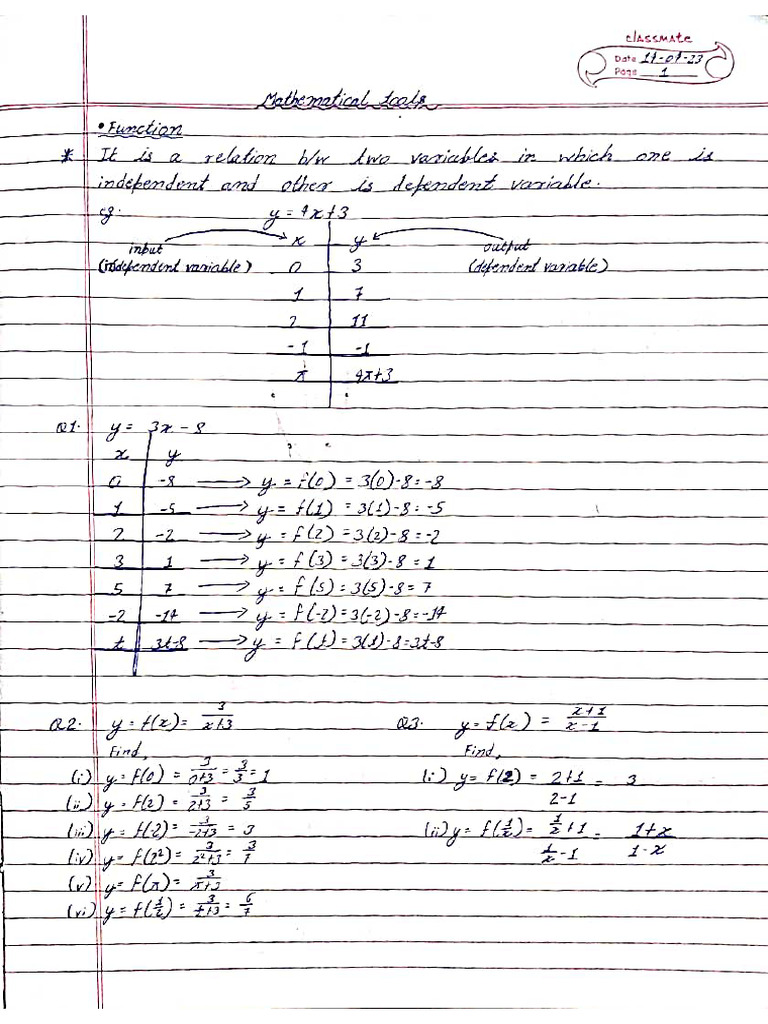 classmate
Date 17-07-23
Page 1
Mathematical tools
• Function
* It is a relation b/w two variables in which one is
independent and other is dependent variable.
eg. y = 4x+3
input x y output
(independent variable) 0 3 (dependent variable)
1 7
2 11
-1 -1
π 4π+3
Q1. y = 3x - 8
x y
0 -8 → y = f(0) = 3(0)-8 = -8
1 -5 → y = f(1) = 3(1)-8 = -5
2 -2 → y = f(2) = 3(2)-8 = -2
3 1 → y = f(3) = 3(3)-8 = 1
5 7 → y = f(5) = 3(5)-8 = 7
-2 -14 → y = f(-2) = 3(-2)-8 = -14
t 3t-8 → y = f(t) = 3(t)-8 = 3t-8
Q2. y = f(x) = 3/(x+3) Q3. y = f(x) = (x+1)/(x-1)
Find, Find,
(i) y = f(0) = 3/(0+3) = 3/3 = 1 (i) y = f(2) = (2+1)/(2-1) = 3
(ii) y = f(2) = 3/(2+3) = 3/5
(iii) y = f(-2) = 3/(-2+3) = 3 (ii) y = f(1/x) = (1/x+1)/(1/x-1) = (1+x)/(1-x)
(iv) y = f(2²) = 3/(2²+3) = 3/7
(v) y = f(π) = 3/(π+3)
(vi) y = f(1/2) = 3/(1/2+3) = 6/7